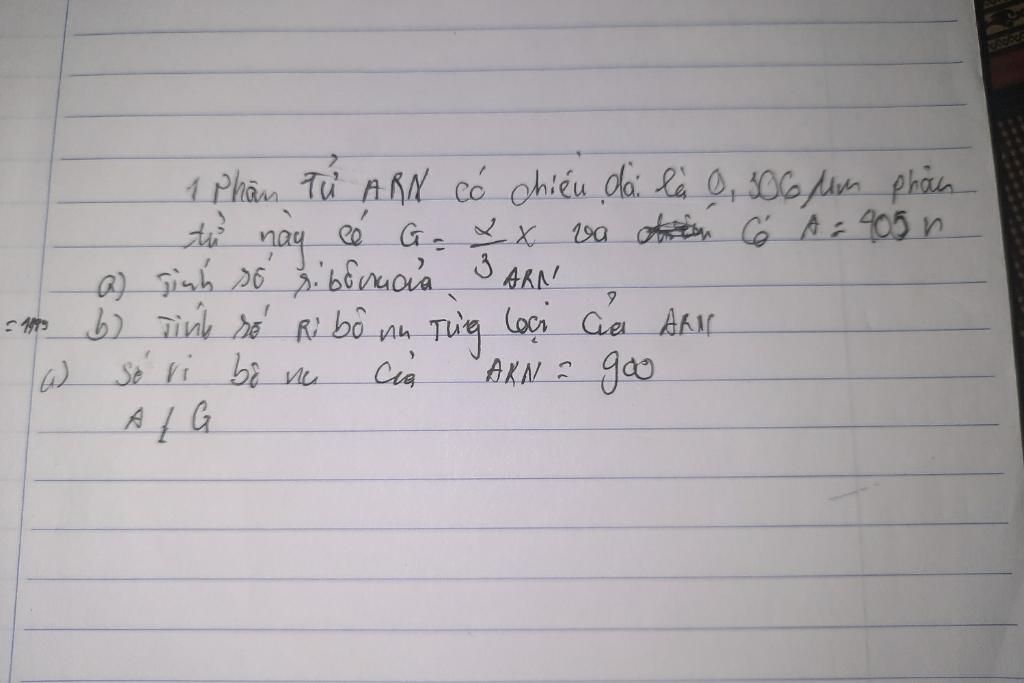 1 Phân Tử ARN có chiều dài là 0,306 µm phân
tử này có G = 2/3 X và có A = 405 n
a) Tính số ribônu của ARN
b) Tính số Ri bô nu Từng loại Của ARN
a) Số ri bô nu của ARN = 900
A G